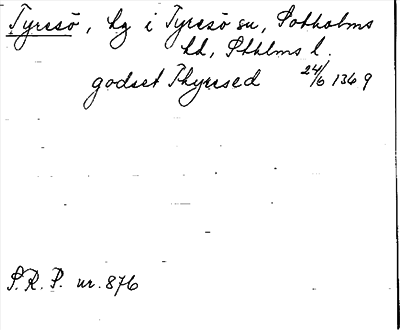 Tyresö, hg i Tyresö sn, Sotholms
hd, Sthlms l.
godset Thyrsed 24/6 1369
S.R.P. nr. 876